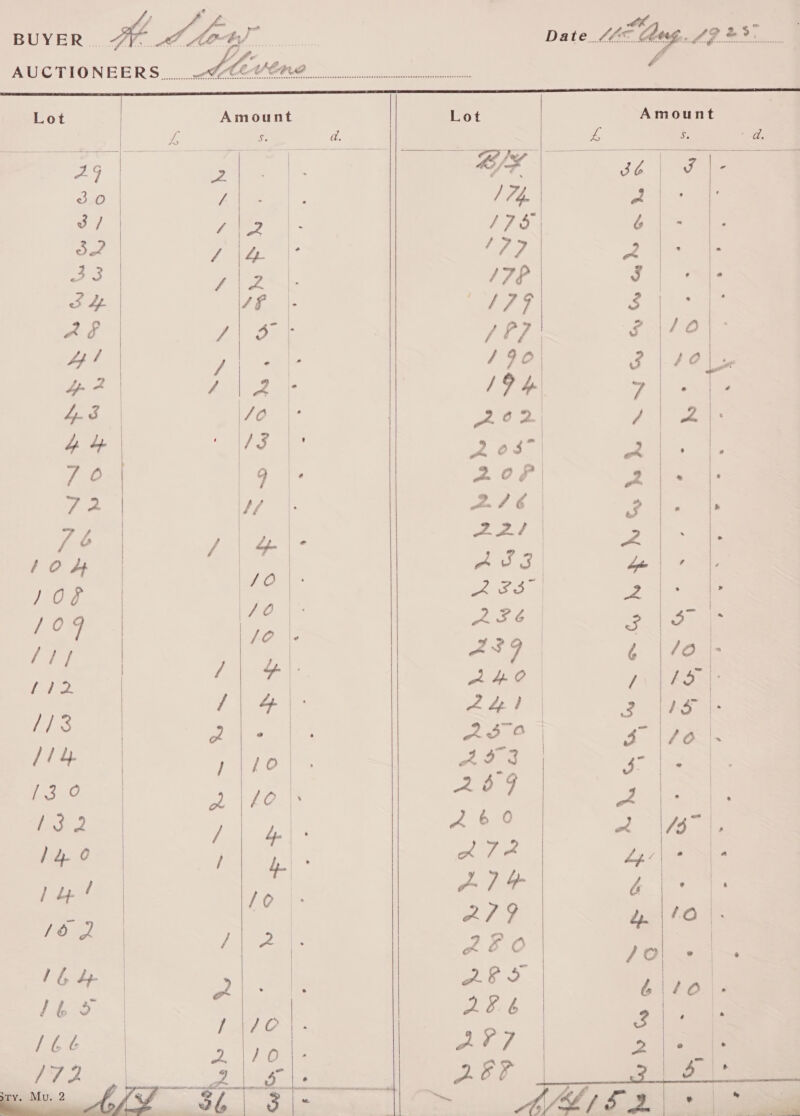 BUYER H. Stow Date 11th Aug. 1925
AUCTIONEERS Stevens
Lot Amount
£ s. d.
29 2 - -
30 1 - -
31 1 2 -
32 1 4 -
33 1 2 -
34 18 -
28 1 5 -
41 1 - -
42 1 2 -
43 10 -
44 13 -
70 9 -
72 11 -
76 1 4 -
104 10 -
108 10 -
109 10 -
111 1 4 -
112 1 4 -
113 2 - -
114 1 10 -
130 2 10 -
132 1 4 -
140 1 4 -
141 10 -
152 1 2 -
164 2 - -
165 1 10 -
166 2 10 -
172 2 5 -
Sry. Mu. 2 C/F 36 3 -
Lot Amount
£ s. d.
B/F 36 3 -
174 2 - -
175 6 - -
177 2 - -
178 3 - -
179 3 - -
187 3 10 -
190 3 10 -
194 7 - -
202 1 2 -
205 2 - -
208 2 - -
216 3 - -
221 2 - -
233 4 - -
235 2 - -
236 3 5 -
239 6 10 -
240 1 15 -
241 3 15 -
250 5 10 -
253 5 - -
259 2 - -
260 2 15 -
272 4 - -
274 6 - -
279 4 10 -
280 10 - -
285 6 10 -
286 3 - -
287 2 - -
288 3 5 -
C/F 152 - -